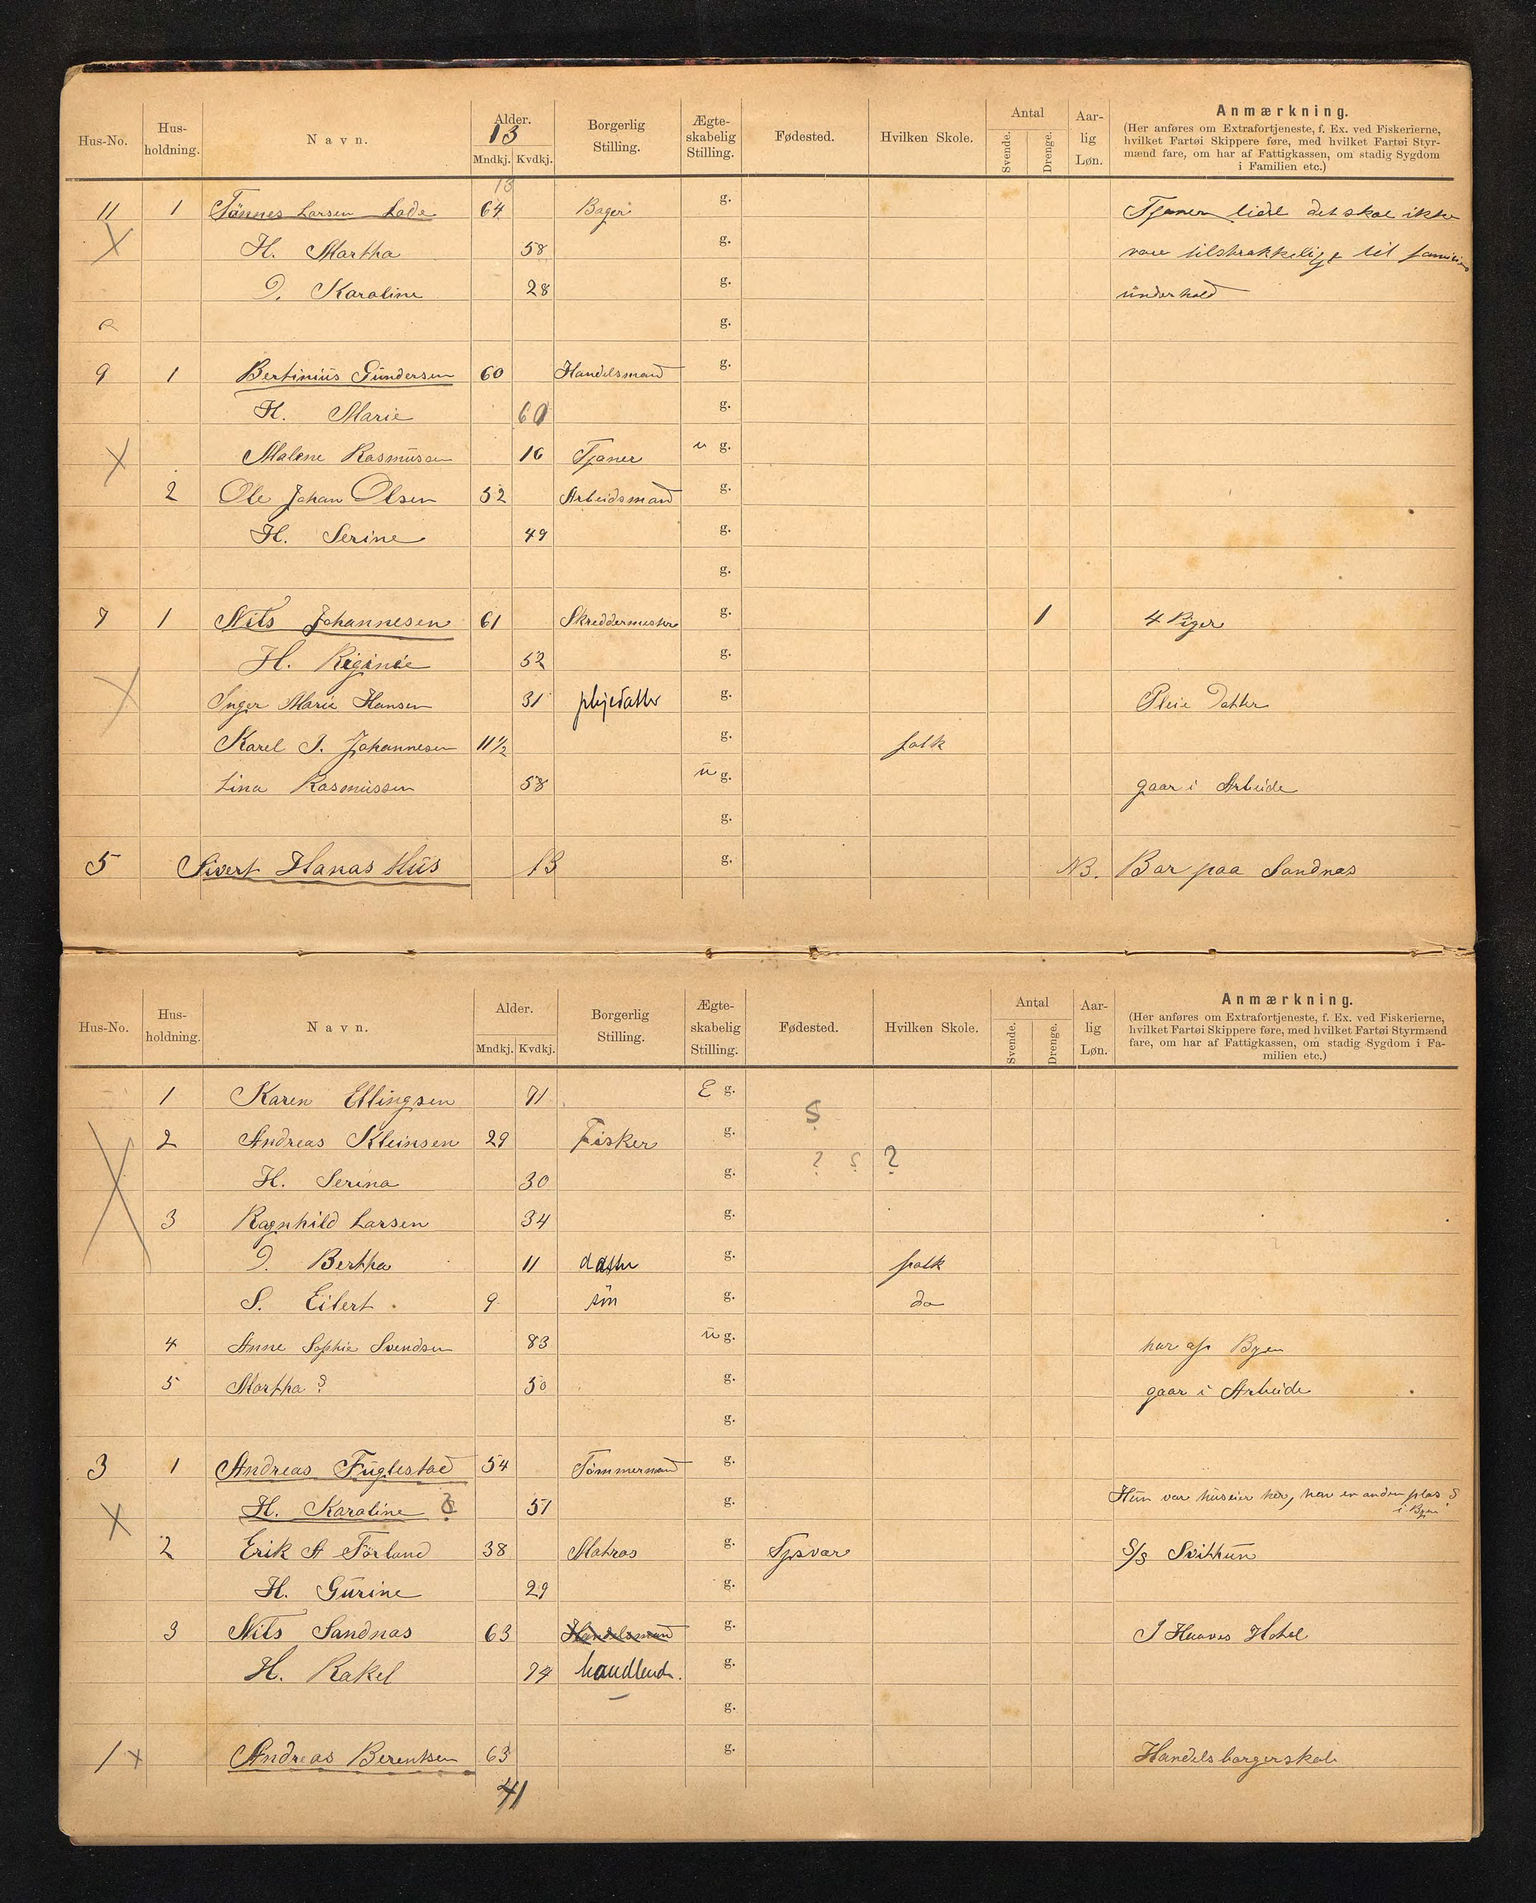 Hus-No. Hus-holdning. Navn. Alder. Mndkj. Kvdkj. Borgerlig Stilling. Ægte-skabelig Stilling. Fødested. Hvilken Skole. Antal Svende. Drenge. Aar-lig Løn. Anmærkning.
(Her anføres om Extrafortjeneste, f. Ex. ved Fiskerierne,
hvilket Fartøi Skippere føre, med hvilket Fartøi Styr-
mænd fare, om har af Fattigkassen, om stadig Sygdom
i Familien etc.)
13
13
11 1 Tönnes Larsen Lade 64 Bager g. Tjener lidt det skal ikke
H. Martha 58 g. være tilstrækkelige til familiens
D. Karoline 28 g. ünderhold
g.
9 1 Bertinius Gundersen 60 Handelsmand g.
H. Marie 60 g.
Malene Rasmüssen 16 Tjener u g.
2 Ole Johan Olsen 52 Arbeidsmand g.
H. Serine 49 g.
g.
7 1 Nils Johannesen 61 Skreddermester g. 1 4 Piger
H. Riginie 52 g.
Inger Marie Hansen 31 plejedatter g. Pleie Datter
Karel J. Johannesen 11 1/2 g. folk
Lina Rasmüssen 58 ü g. gaar i Arbeide
g.
5 Sivert Hanas Hüs 13 g. NB. Bor paa Sandnæs
Hus-No. Hus-holdning. Navn. Alder. Mndkj. Kvdkj. Borgerlig Stilling. Ægte-skabelig Stilling. Fødested. Hvilken Skole. Antal Svende. Drenge. Aar-lig Løn. Anmærkning.
(Her anføres om Extrafortjeneste, f. Ex. ved Fiskerierne,
hvilket Fartøi Skippere føre, med hvilket Fartøi Styrmænd
fare, om har af Fattigkassen, om stadig Sygdom i Fa-
milien etc.)
1 Karen Ellingsen 71 E g.
2 Andreas Kleinsen 29 Fisker g.
H. Serina 30 g. ? ? ?
3 Ragnhild Larsen 34 g.
D. Bertha 11 datter g. folk
S. Eilert 9 sön g. do
4 Anne Sophie Svendsen 83 ü g. har af Byen
5 Martha ? 50 g. gaar i Arbeide
g.
3 1 Andreas Füglestad 54 Tömmermand g.
H. Karoline ? 51 g. Hün var hüseier her, har en anden plas ? i Byen
2 Erik A Förland 38 Matros g. Tysvær S/S Svithün
H. Gürine 29 g.
3 Nils Sandnæs 63 Handelsmand g. I Haaves Hotel
H. Rakel 74 handlende. g.
g.
1 Andreas Berentsen 63 g. Handelsborgerskab
41